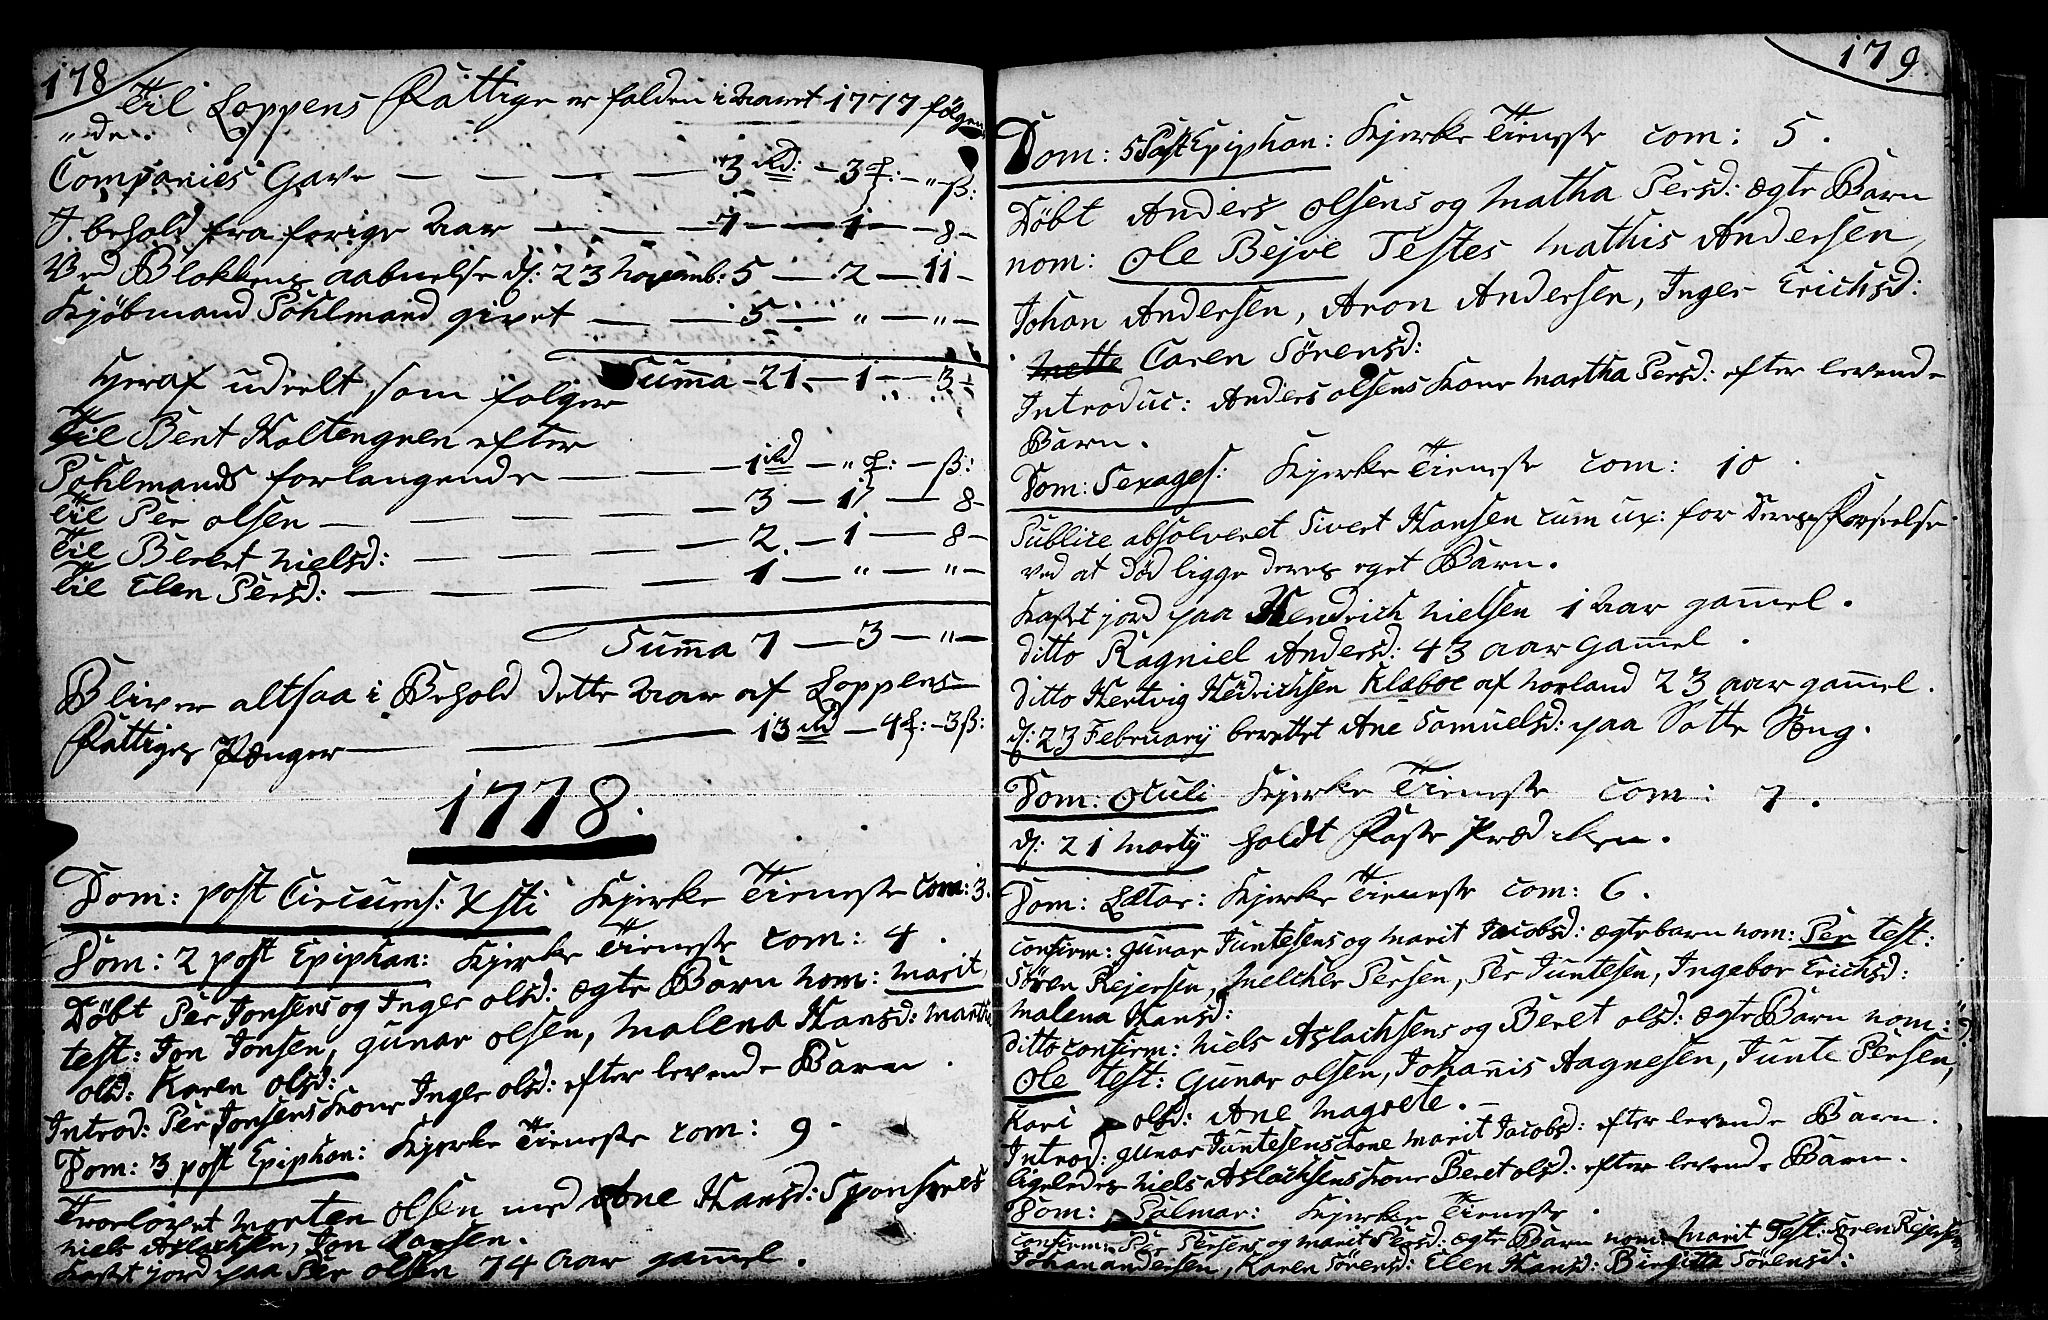 178
Til Loppens Fattige er falden i Aaret 1777 følgen
"de.
Companies Gave — — — — 3 rd: – 3 ort: – " ß:
I behold fra forige Aar — — — 7 — 1 — 8 –
Ved Blokkens aabnelse d: 23 Novemb: 5 — 2 — 11 –
Kjøbmand Pohlmand givet — — 5 — " — " –
Summa – 21 — 1 — 3
Heraf udeelt som følger
Til Bent Holtengnen efter
Pohlmands forlangende — — — 1 rd — " ort: – ß:
Til Per Olsen — — — — — 3 — 1 — 8 –
Til Beret Nielsd: — — — — 2 — 1 — 8 –
Til Elen Persd: — — — — — 1 — " — " –
Summa 7 — 3 — " –
Bliver altsaa i Behold dette Aar af Loppens
Fattiges Penger — — — 13 rd — 4 ort: – 3 ß:
1778.
Dom: post Circums: Xsti Kjerke Tieneste com: 3.
Dom: 2 post Epiphan: Kjerke Tieneste com: 4.
Døbt Per Jonsens og Inger Olsd: ægte Barn nom: Marit,
test: Jon Jonsen, Gunar Olsen, Malena Hansd: Martha
Olsd: Karen Olsd:
Introd: Per Jonsens Kone Inger Olsd: efter levende Barn.
Dom: 3 post Epiphan: Kjerke Tieneste com: 9.
Troelovet Morten Olsen med Ane Hansd: Sponsores
Niels Aslachsen, Jon Larsen.
Kastet jord paa Per Olsen 74 Aar gam̄el.
179.
Dom: 5 Post Epiphan: Kjerke Tieneste com: 5.
Døbt Anders Olsens og Matha Persd: ægte Barn
nom: Ole Bejve Testes Mathis Andersen,
Johan Andersen, Aron Andersen, Inger Erichsd:
Mette Caren Sørensd:
Introduc: Anders Olsens Kone Martha Persd: efter levende
Barn.
Dom: Sexages: Kjerke Tieneste com: 10.
Publice absolveret Sivert Hansen cum ux: for Deres Forseelse
ved at Død ligge deres eget Barn.
Kastet jord paa Hendrich Nielsen 1 Aar gam̄el.
ditto Ragniel Andersd: 43 aar gam̄el.
ditto Hertvig Hedrichsen Klæboe af Norland 23 aar gam̄el.
d: 23 February berettet Ane Samuelsd: paa Sotte Seng.
Dom: Oculi Kjerke Tieneste com: 7.
d: 21 Marty holdt Faste Prædiken.
Dom: Lætar: Kjerke Tieneste com: 6.
Confirm: Gunar Juntesens og Marit Jacobsd: ægte barn nom: Per test:
Søren Rejersen, Melcher Persen, Per Juntesen, Ingebor Erichsd:
Malena Hansd:
ditto confirm: Niels Aslachsens og Beret Olsd: ægte Barn nom:
Ole test: Gunar Olsen, Johan̄is Aagnesen, Junte Persen,
Kari Olsd: Ane Magrete. –
Introd: Gunar Juntesens Kone Marit Jacobsd: efter levende Barn.
ligeledes Niels Aslachsens Kone Beret Olsd: efter levende Barn.
Dom: Palmar: Kjerke Tieneste.
Confirm: Per Persens og Marit Persd: ægte Barn nom: Marit Test: Søren Rejersen
Johan Andersen, Karen Sørensd: Elen Hansd: Birgitta Sørensd: